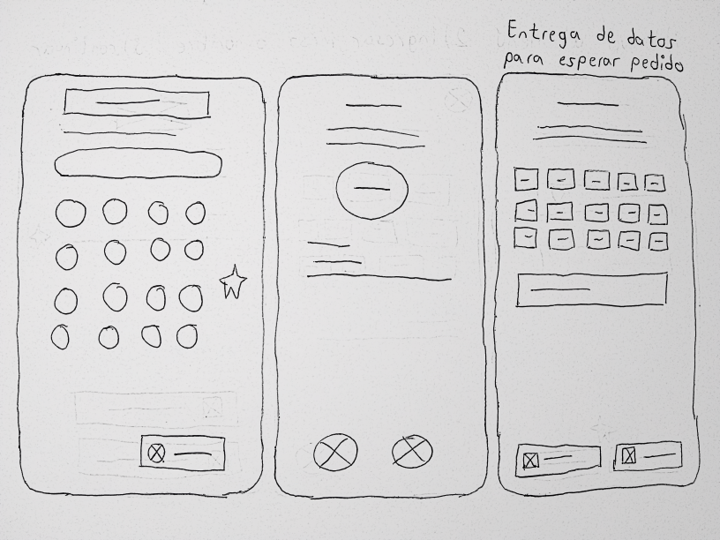 Entrega de datos
para esperar pedido